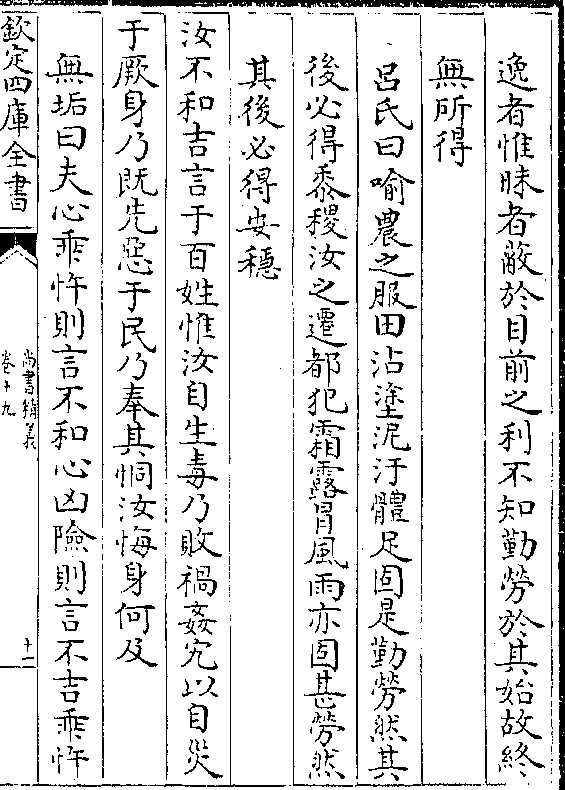 逸者惟昧者蔽於目前之利不知勤勞於其始故終
無所得
吕氏曰喻農之服田沾塗泥汙體足固是勤勞然其
後必得黍稷汝之遷都犯霜露冒風雨亦固甚勞然
其後必得安穩
汝不和吉言于百姓惟汝自生毒乃敗禍姦宄以自災
于厥身乃既先惡于民乃奉其恫汝悔身何及
無垢曰夫心乖忤則言不和心凶險則言不吉乖忤
欽定四庫全書
尚書精義
卷十九
十一